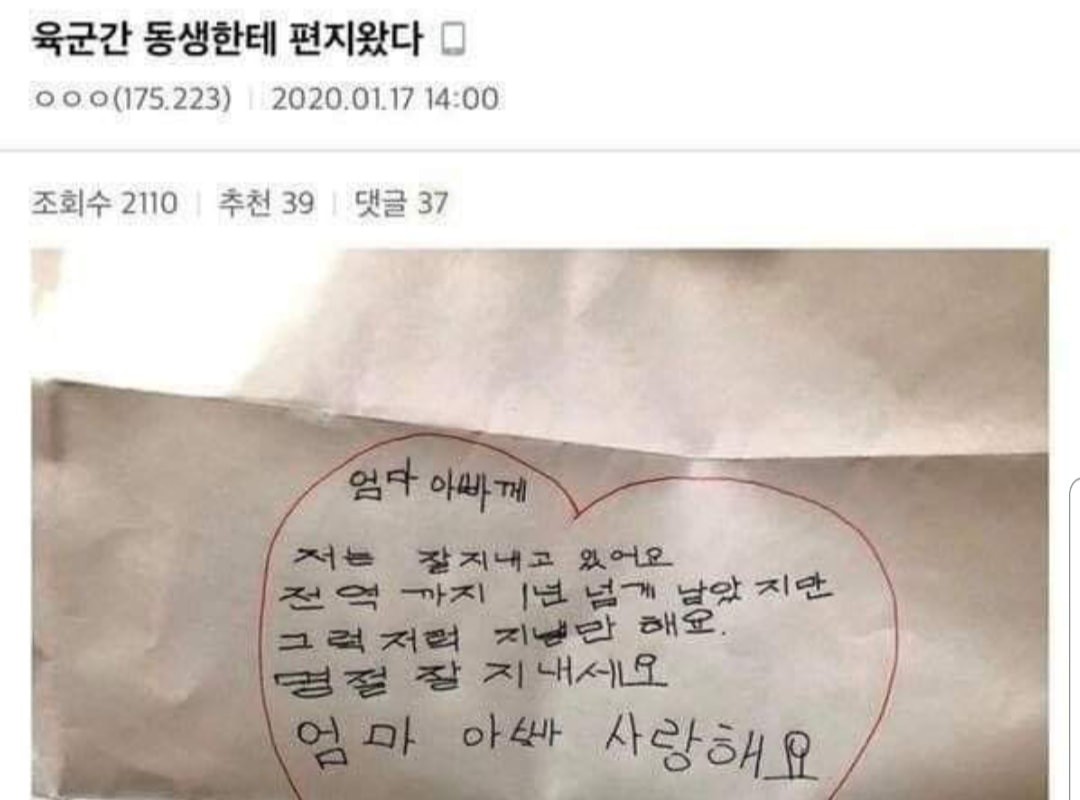 육군간 동생한테 편지왔다
ㅇㅇㅇ(175.223) | 2020.01.17 14:00
조회수 2110 | 추천 39 | 댓글 37
엄마 아빠께
저는 잘지내고 있어요
전역 까지 1년 넘게 남았 지만
그럭저럭 지낼만 해요.
명절 잘 지내세요
엄마 아빠 사랑해요